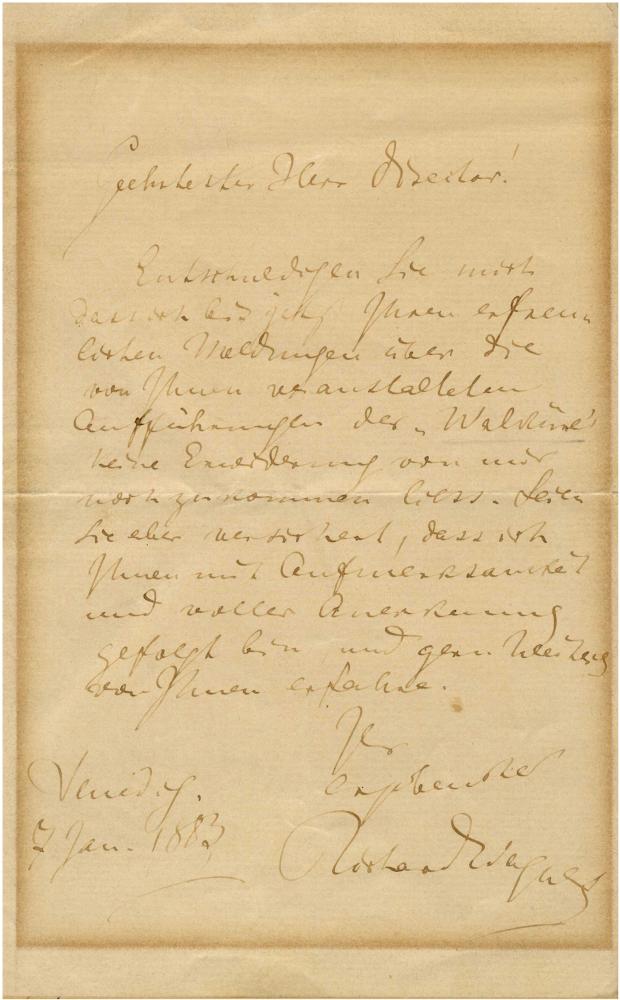 Geehrtester Herr Director!
Entschuldigen Sie mich
dass ich bis jetzt Ihren erfreu-
lichen Meldungen über die
von Ihnen veranstalteten
Aufführungen der „Walküre"
keine Erwiderung von mir
noch zukommen liess. Seien
Sie aber versichert, dass ich
Ihnen mit Aufmerksamkeit
und voller Anerkennung
gefolgt bin und gern Weiteres
von Ihnen erfahre.
Ihr
ergebenster
Venedig.
7 Jan. 1883
Richard Wagner